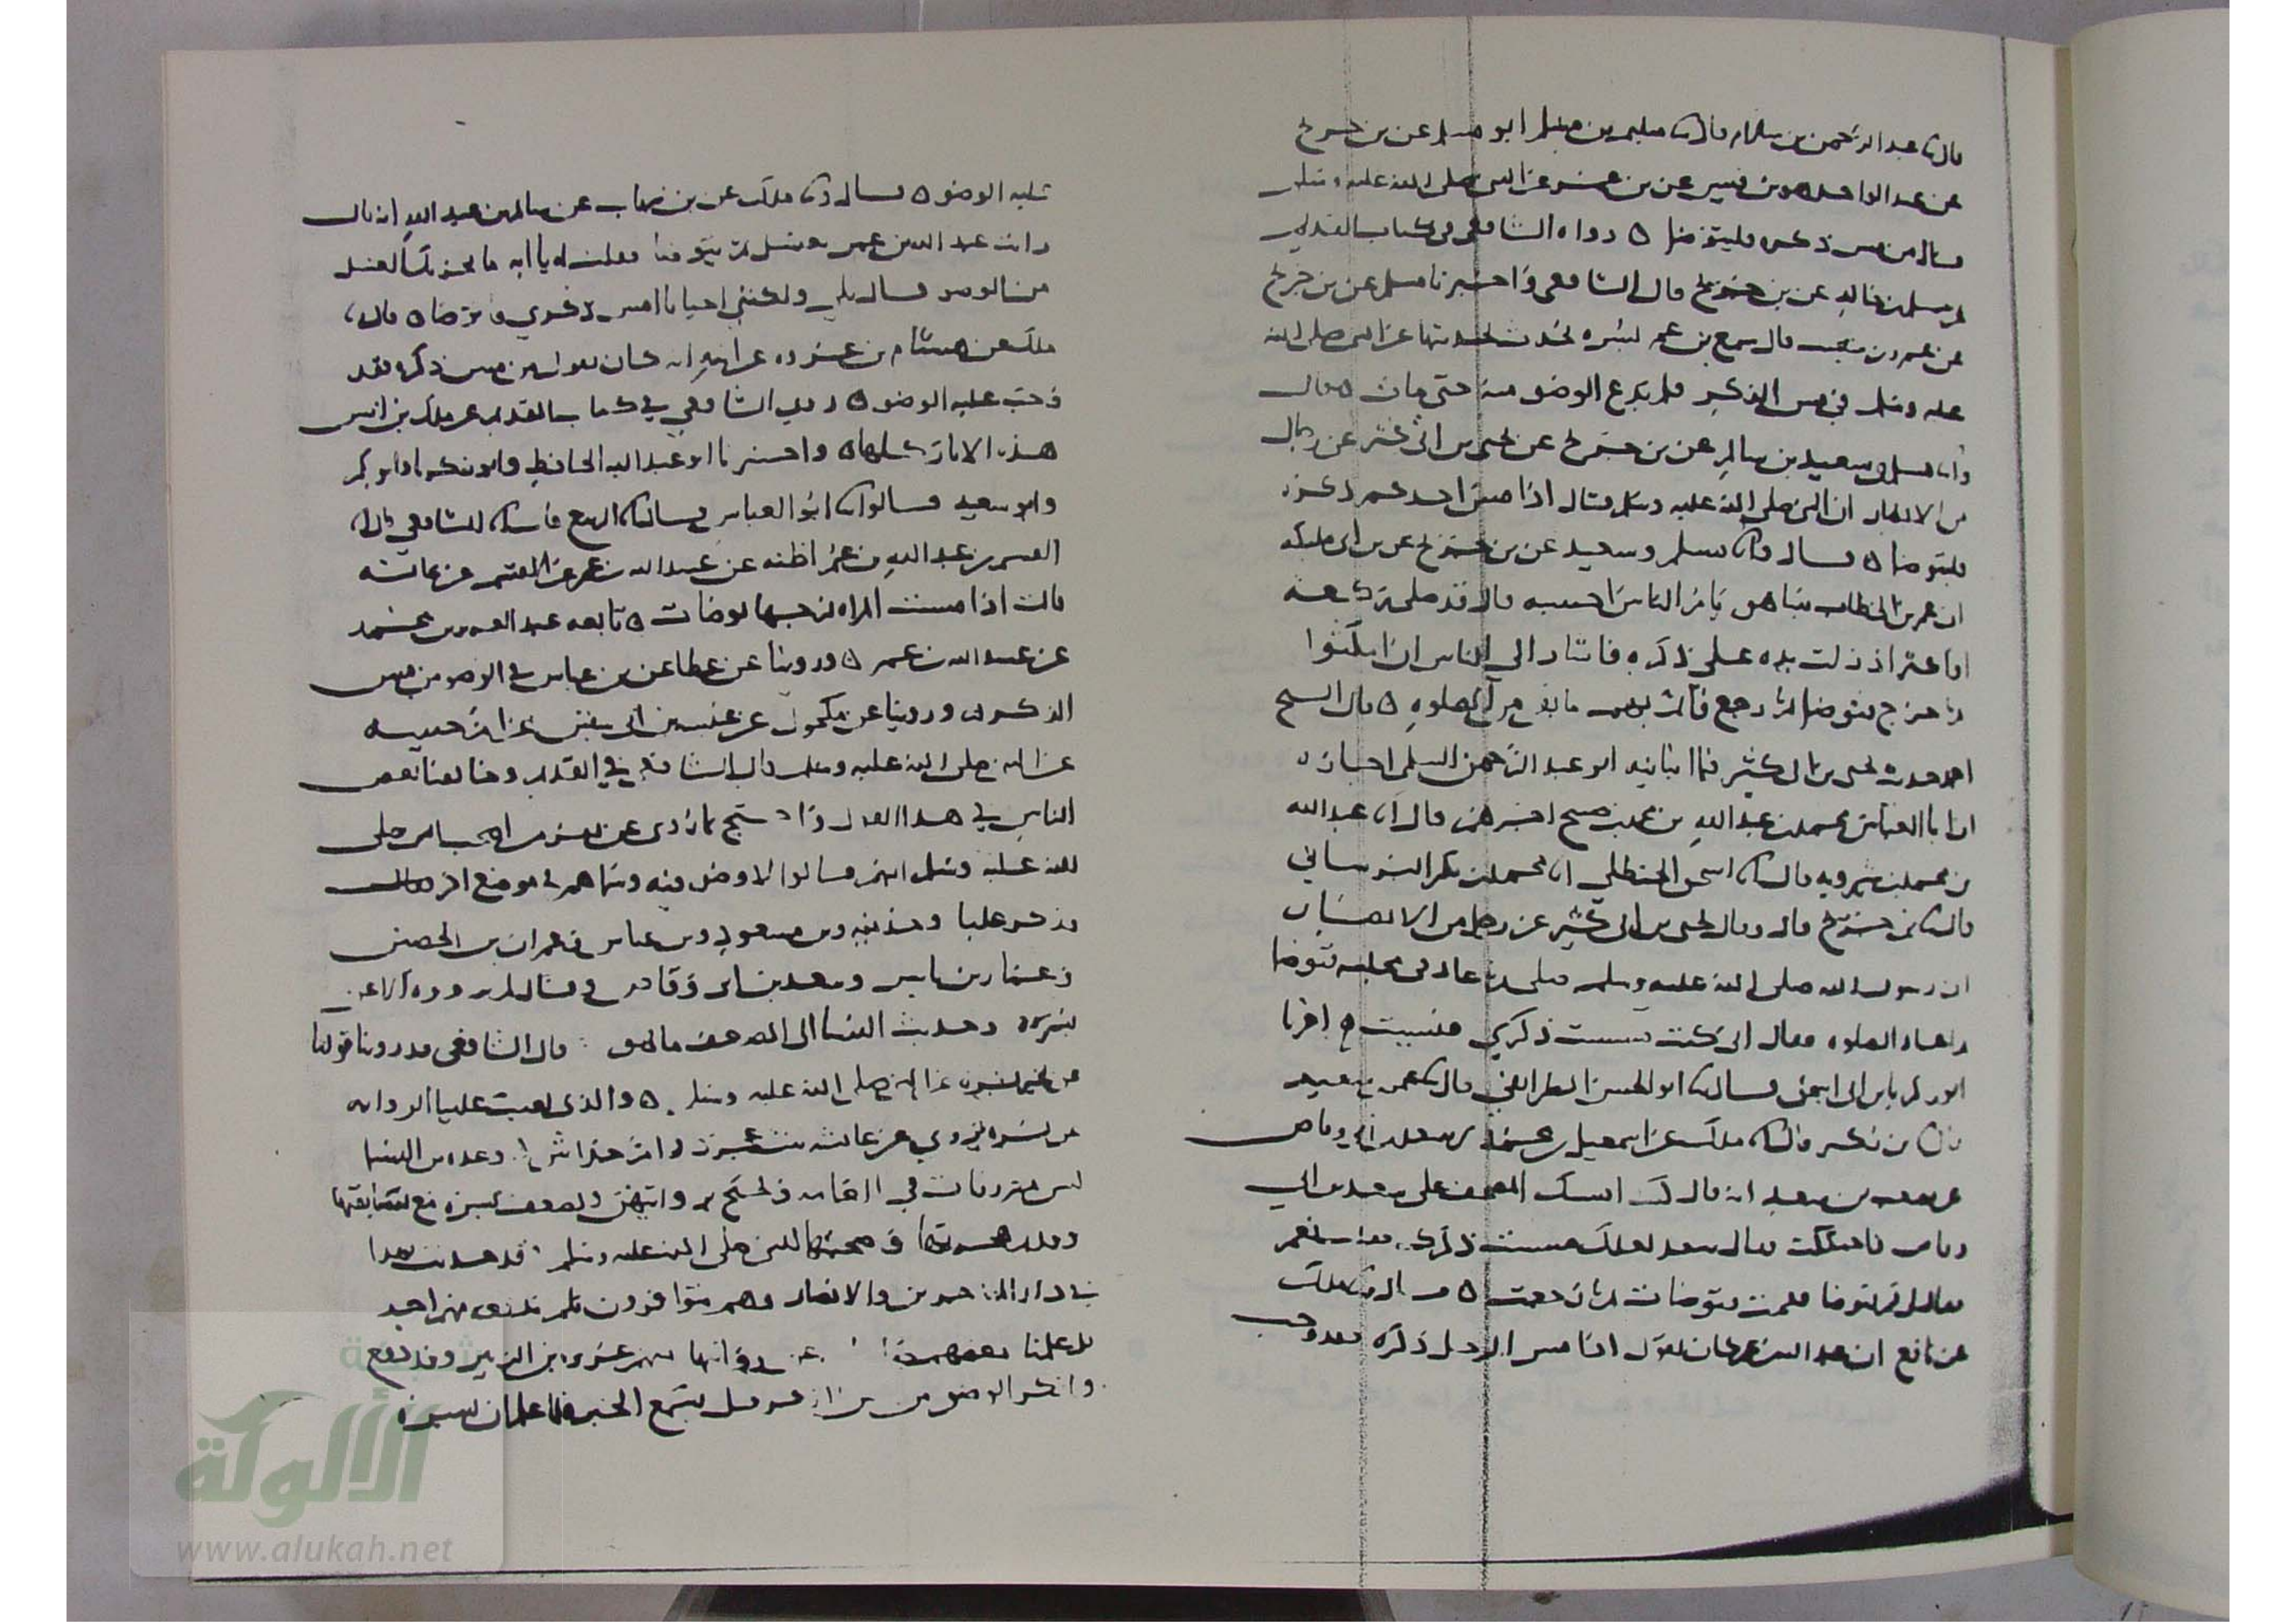 قال نا عبد الرحمن بن سلام قال نا سليم بن مسلم ابو مسلم عن بن جريج
عن عبد الواحد بن قيس عن بن عمر عن النبي صلى الله عليه وسلم
قال من مس ذكره فليتوضا ه رواه الشافعي في كتاب القديم
عن مسلم بن خالد عن بن جريج قال الشافعي واخبرنا مسلم عن بن جريج
عن عمرو بن شعيب قال سمع بن عمر بسره تحدث بحديثها عن النبي صلى الله
عليه وسلم في مس الذكر فلم يدع الوضو منه حتى مات ه قال
وانا مسلم وسعيد بن سالم عن بن جريج عن يحيى بن ابي كثير عن رجال
من الانصار ان النبي صلى الله عليه وسلم قال اذا مس احدكم ذكره
فليتوضا ه قال وانا مسلم وسعيد عن بن جريج عن بن ابي مليكه
ان عمر بن الخطاب بينا هو يام الناس احسبه قال قد صلى ركعه
او اكثر اذ زلت يده على ذكره فاشار الى الناس ان امكثوا
ثم خرج فتوضا ثم رجع فاتم بهم ما بقي من الصلوه ه قال الشيخ
اما حديث يحيى بن ابي كثير فما انبانيه ابو عبد الرحمن السلمي اجازه
ان ابا العباس محمد بن عبد الله اخبرهم قال انا عبد الله
بن محمد بن شيرويه قال نا اسحق الحنظلي انا محمد بن بكر البرساني
قال نا بن جريج قال وقال يحيى بن ابي كثير عن رجل من الانصار
ان رسول الله صلى الله عليه وسلم صلى ثم عاد في مجلسه فتوضا
ثم اعاد الصلوه فقال اني كنت مسست ذكري فنسيت ه اخبرنا
ابو زكريا بن ابي اسحق قال نا ابو الحسن الطرائفي قال نا عثمن بن سعيد
نا بن بكير قال نا ملك عن اسمعيل بن محمد بن سعد بن ابي وقاص
عن مصعب بن سعد انه قال كنت امسك المصحف على سعد بن ابي
وقاص فاحتككت فقال سعد لعلك مسست ذكرك فقلت نعم
فقال قم فتوضا فقمت فتوضات ثم رجعت ه قال نا ملك
عن نافع ان عبد الله بن عمر كان يقول اذا مس الرجل ذكره فقد وجب
عليه الوضو ه قال ونا ملك عن بن شهاب عن سالم بن عبد الله انه قال
رايت عبد الله بن عمر يغتسل ثم يتوضا فقلت له يا ابه ما يجزيك الغسل
من الوضو قال بلى ولكني احيانا امس ذكري فاتوضا ه قال نا
ملك عن هشام بن عروه عن ابيه انه كان يقول من مس ذكره فقد
وجب عليه الوضو ه روى الشافعي في كتاب القديم عن ملك بن انس
هذه الاثار كلها ه واخبرنا ابو عبد الله الحافظ وابو زكريا وابو بكر
وابو سعيد قالوا نا ابو العباس قال نا الربيع قال نا الشافعي قال نا
القسم بن عبد الله بن عمر اظنه عن عبيد الله بن عمر عن القسم عن عائشه
قالت اذا مست المراه فرجها توضات ه تابعه عبد العزيز بن محمد
عن عبيد الله بن عمر ه وروينا عن عطا عن بن عباس في الوضو من مس
الذكر وروينا عن مكحول عن عنبسه بن ابي سفين عن ام حبيبه
عن النبي صلى الله عليه وسلم قال الشافعي في القديم وخالفنا بعض
الناس في هذا القول واحتج بان روى عن نفر من اصحاب النبي صلى
الله عليه وسلم انهم قالوا لا وضو فيه وسماهم في موضع اخر فقال
فذكر عليا وحذيفه وبن مسعود وبن عباس وعمران بن الحصين
وعمار بن ياسر وسعد بن ابي وقاص
بسره وحديث النسا الى الضعف ما هو قال الشافعي قد روينا قولنا
عن غير بسره عن النبي صلى الله عليه وسلم ه والذي يعيب علينا الروايه
عن بسره يروي عن عائشه بنت عجرد وام خداش وعده من النسا
لسن معروفات في العامه ويحتج بروايتهن ويضعف بسره مع سابقتها
وقديم هجرتها وصحبتها للنبي صلى الله عليه وسلم قد حدثت بهذا
في دار المهاجرين والانصار وهم متوافرون فلم يدفعه منهم احد
بل علمنا بعضهم عن روايتها منهم عروه بن الزبير وقد دفع
وانكر الوضو من مس الذكر قبل يسمع الخبر فلما علم ان بسره
الألوكة
www.alukah.net